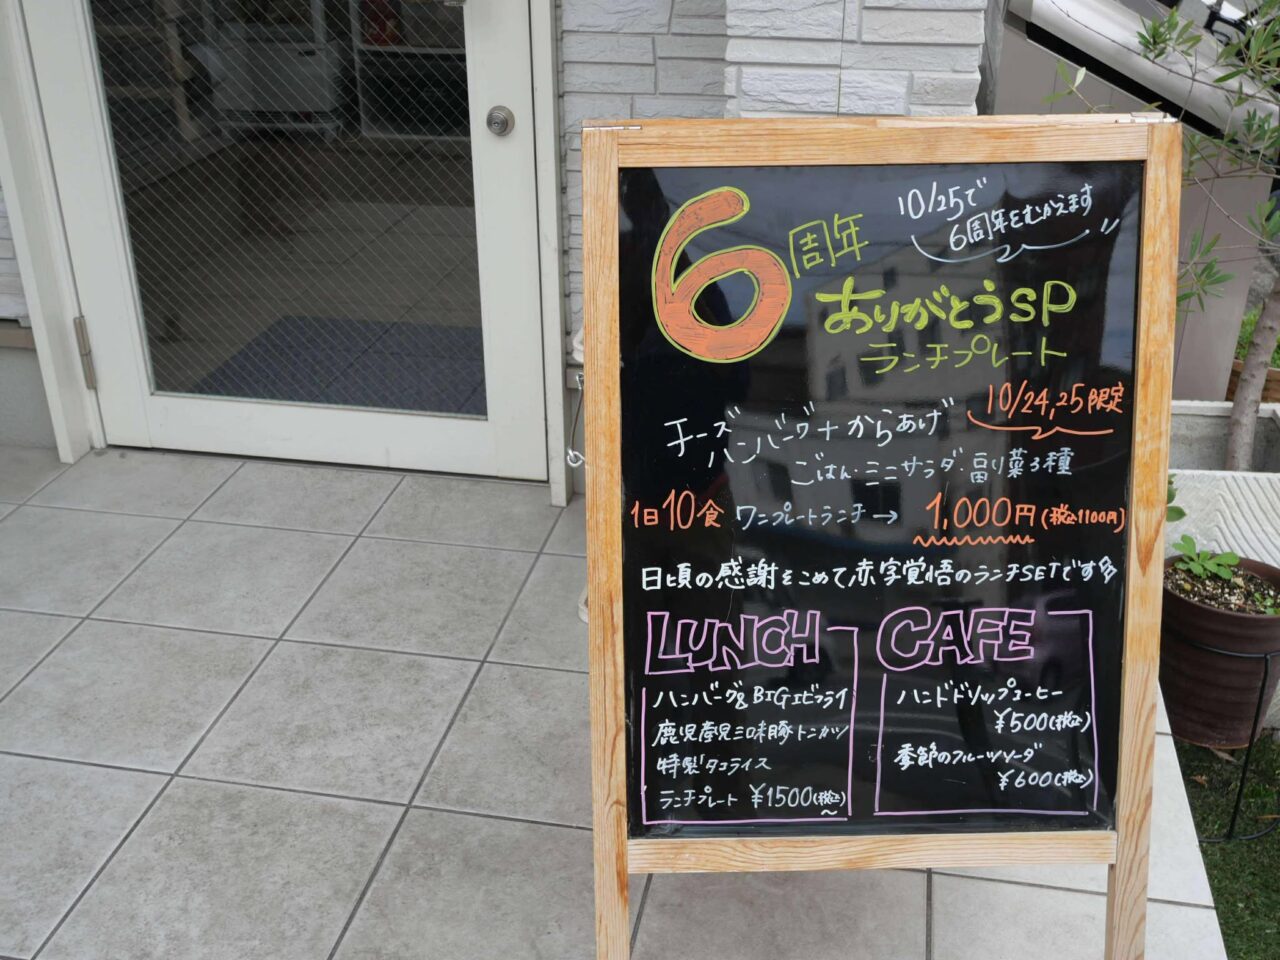 6周年
10/25で
6周年をむかえます
ありがとうSP
ランチプレート
10/24,25限定
チーズ
ハンバーグ+からあげ
ごはん・ミニサラダ・副菜3種
1日10食 ワンプレートランチ→ 1,000円(税込1100円)
日頃の感謝をこめて赤字覚悟のランチSETです
LUNCH
ハンバーグ&BIGエビフライ
鹿児島県三味豚トンカツ
特製タコライス
ランチプレート ¥1500(税込)~
CAFE
ハンドドリップコーヒー
¥500(税込)
季節のフルーツソーダ
¥600(税込)